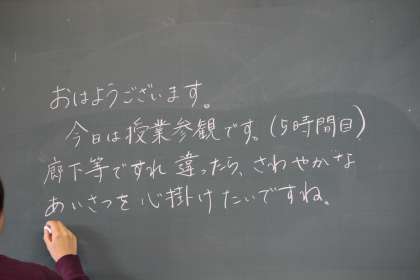 おはようございます。
今日は授業参観です。(5時間目)
廊下等ですれ違ったら、さわやかな
あいさつを心掛けたいですね。